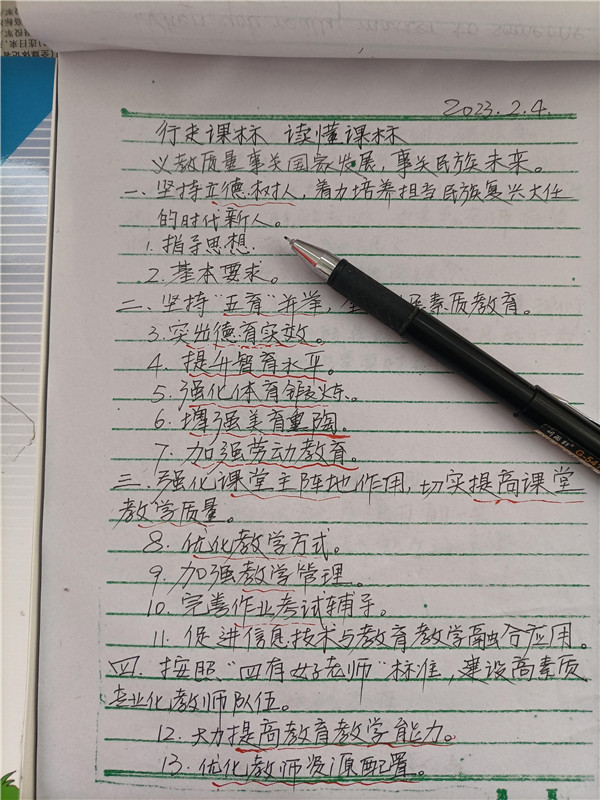 When you really matter to someone
2023.2.4.
行走课标 读懂课标
义教质量事关国家发展，事关民族未来。
一、坚持立德树人，着力培养担当民族复兴大任
的时代新人。
1.指导思想.
2.基本要求。
二、坚持“五育”并举，素质教育。
3.突出德育实效。
4.提升智育水平。
5.强化体育锻炼。
6.增强美育熏陶.
7.加强劳动教育。
三.强化课堂主阵地作用,切实提高课堂
教学质量。
8.优化教学方式。
9.加强教学管理。
10.完善作业考试辅导。
11.促进信息技术与教育教学融合应用。
四.按照“四有好老师”标准,建设高素质
专业化教师队伍。
12.大力提高教育教学能力。
13.优化教师资源配置。
第 页